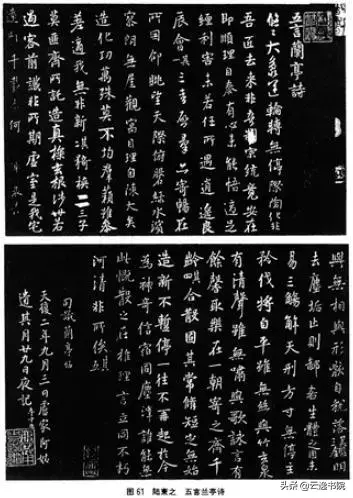 五言蘭亭詩
悠悠大象運輪轉無停際陶化非
吾匠去來非吾制宗統竟安在
即順理自泰有心未能悟適足
經利害未若任所遇逍遙良
辰會 三春啟群品寄暢在
所因仰眺望天際俯磐綠水濱
寥朗無厓觀寓目理自陳大矣
造化功萬殊莫不均群籟雖參
差適我無非新 猗與二三子
莫匪齊所託造真探玄根涉世若
過客前識非所期虛室是我宅
遠想千載外何
興無相與形骸自脫落鑒明
去塵垢止則鄙吝生體之固未
易三觴解天刑方寸無停主
矜伐將自平雖無絲與竹玄泉
有清聲雖無嘯與歌詠言有
餘馨取樂在一朝寄之齊千
齡 合散固其常脩短定無始
造新不暫停一往不再起於今
為神奇信宿同塵滓誰能無
此慨散之在推理言立同不朽
河清非所俟
蘭亭
天復二年九月三日
遣其月廿九日夜記
图 61 陆柬之 五言兰亭诗
头条 @云逸书院